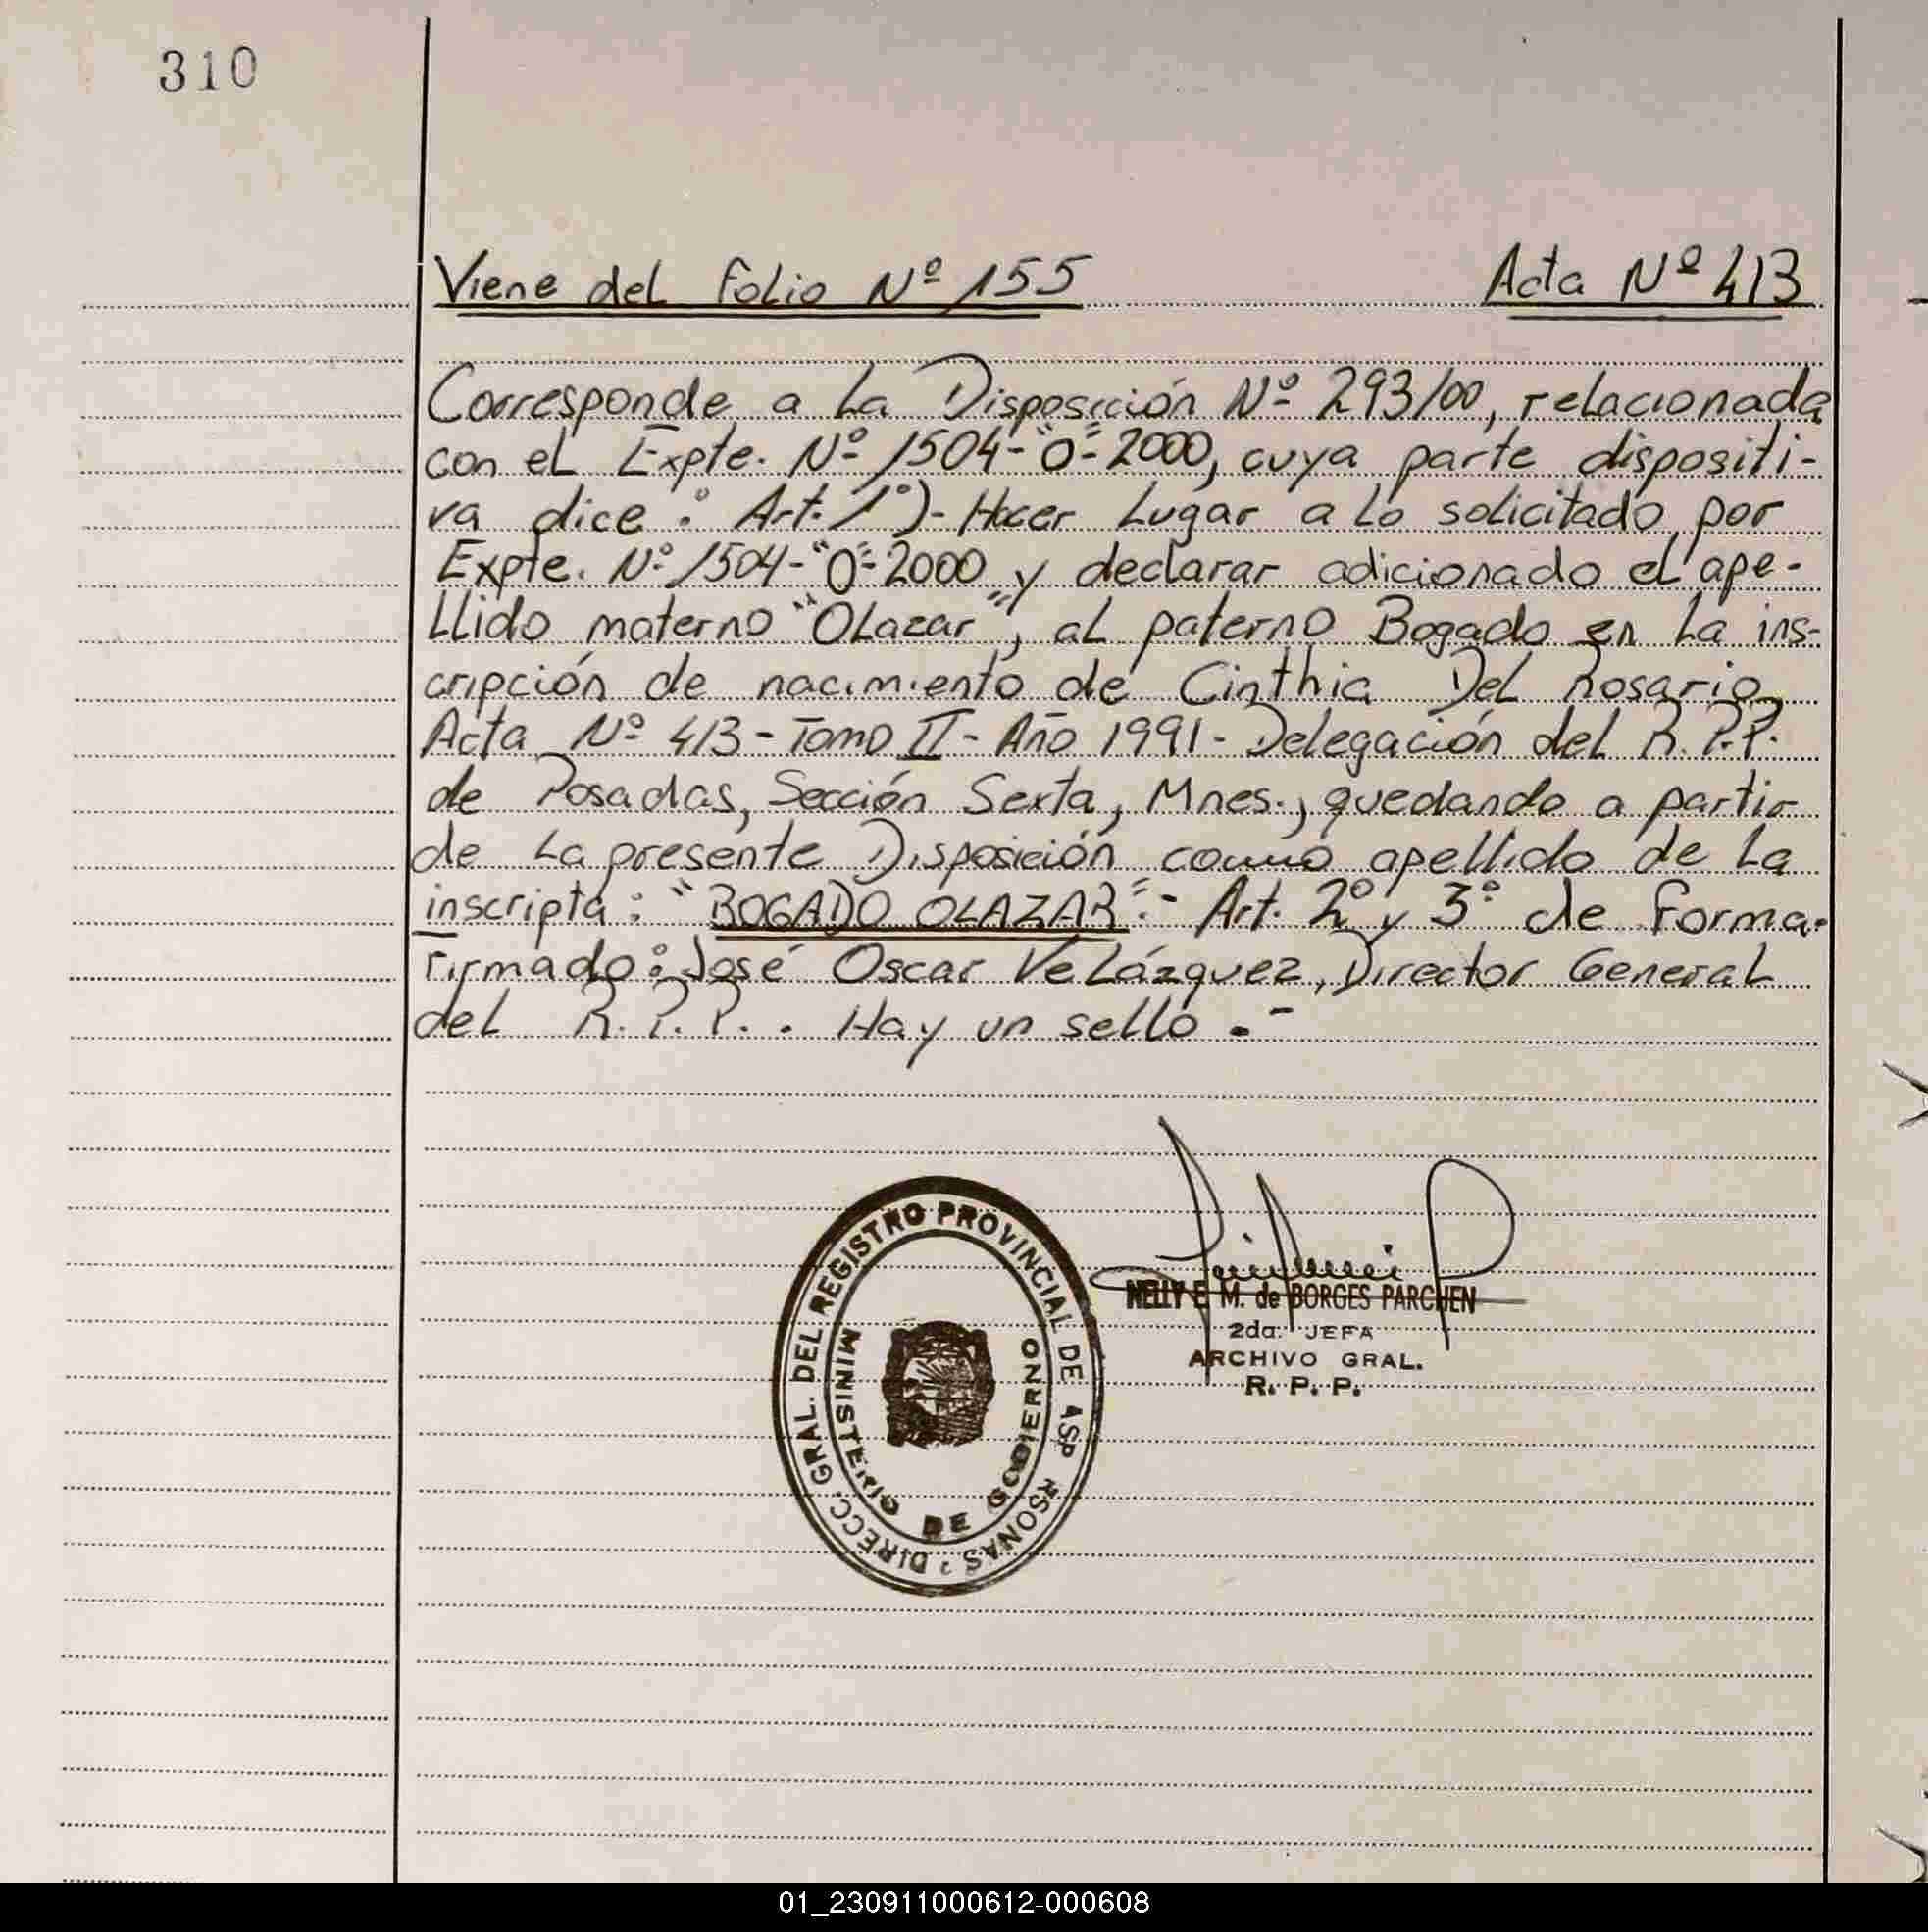 310
Viene del Folio Nº 155 Acta Nº 413
Corresponde a La Disposición Nº 293/00, relacionada
con el Expte. Nº 1504-"O"-2000, cuya parte dispositi-
va dice: Art. 1º)- Hacer Lugar a Lo solicitado por
Expte. Nº 1504-"O"-2000 y declarar adicionado el ape-
LLido materno "OLazar", al paterno Bogado en La ins-
cripción de nacimiento de Cinthia Del Rosario,
Acta Nº 413 - Tomo II - Año 1991 - Delegación del R.P.P.
de Posadas, Sección Sexta, Mnes., quedando a partir
de La presente Disposición como apellido de La
inscripta: "BOGADO OLAZAR".- Art. 2º y 3º de forma.
Firmado: José Oscar Velázquez, Director General
del R.P.P.. Hay un sello.-
NELLY E. M. de BORGES PARCHEN
2da. JEFA
ARCHIVO GRAL.
R. P. P.
DIRECC. GRAL. DEL REGISTRO PROVINCIAL DE ASP RSONAS
MINISTERIO DE GOBIERNO
01_230911000612-000608